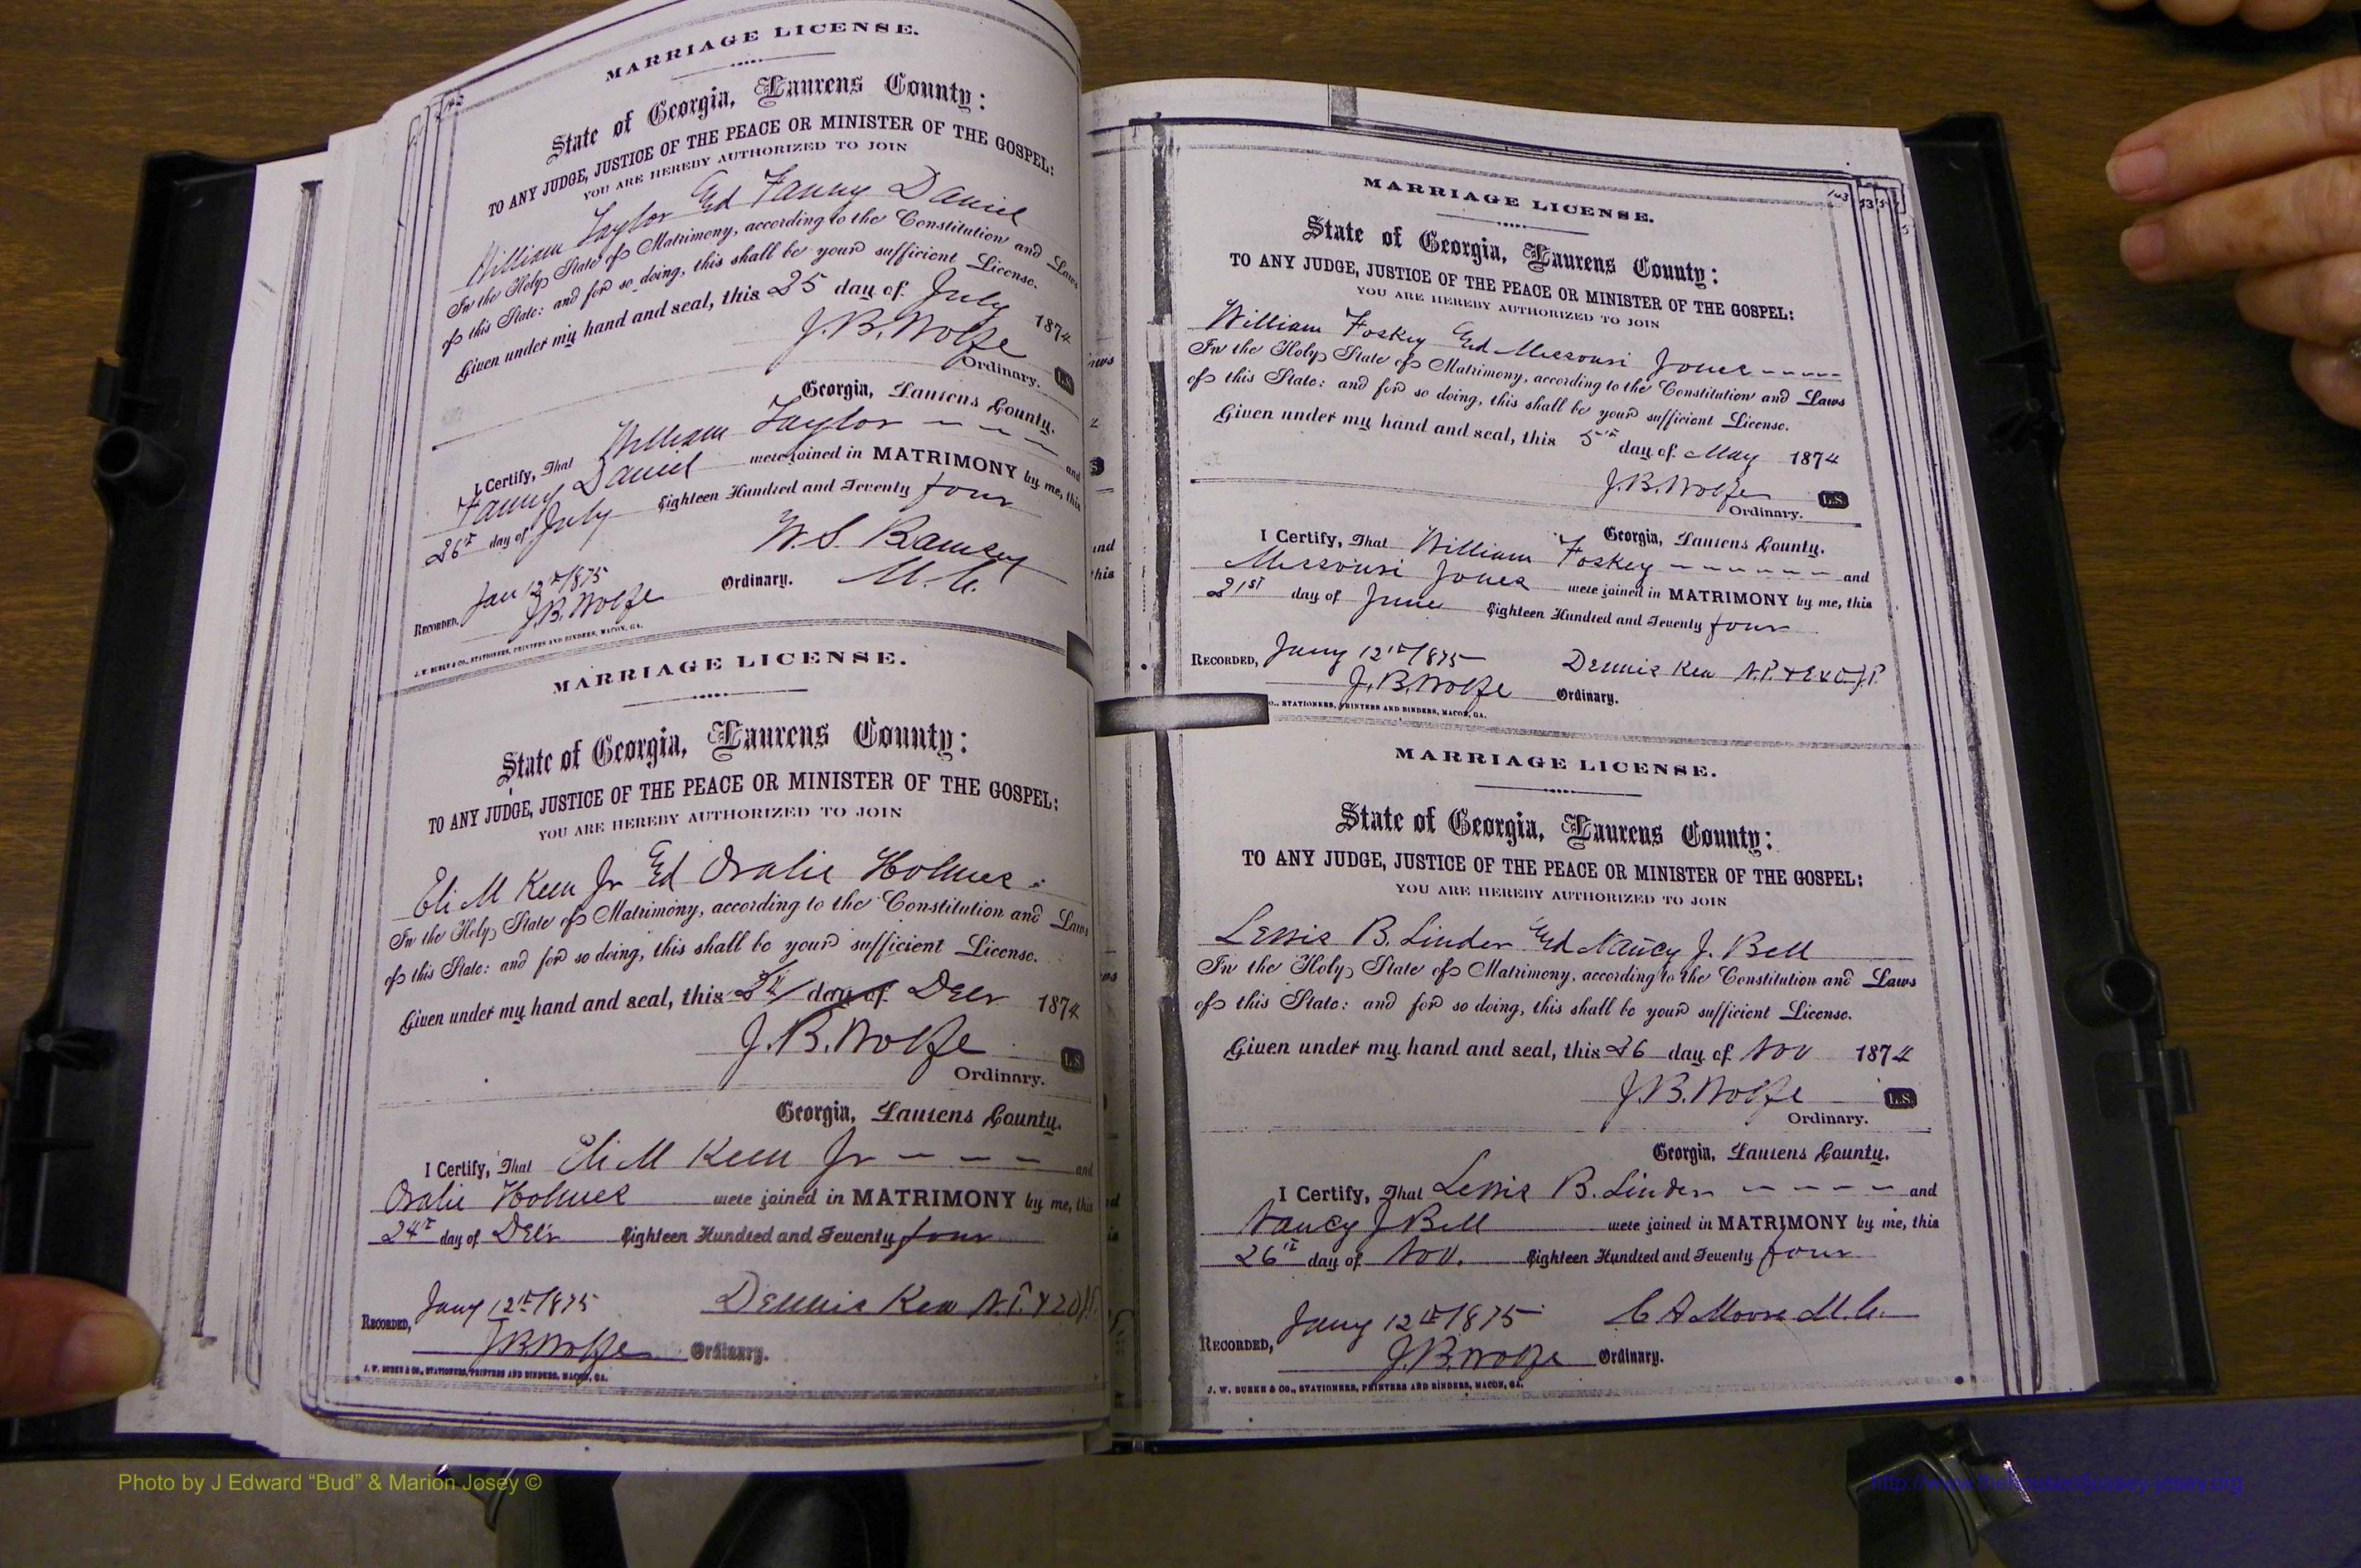 142
MARRIAGE LICENSE.
State of Georgia, Laurens County:
TO ANY JUDGE, JUSTICE OF THE PEACE OR MINISTER OF THE GOSPEL:
YOU ARE HEREBY AUTHORIZED TO JOIN
William Taylor Ed Fanny Daniel
In the Holy State of Matrimony, according to the Constitution and Laws
of this State: and for so doing, this shall be your sufficient License.
Given under my hand and seal, this 25 day of July 1874
J.B. Wolfe L.S.
Ordinary.
Georgia, Laurens County.
I Certify, That William Taylor - - - and
Fanny Daniel were joined in MATRIMONY by me, this
26th day of July Eighteen Hundred and Seventy four
W.S. Ramsey
Recorded, Jan 12th/1875 M.G.
J.B. Wolfe Ordinary.
J. W. BURKE & CO., STATIONERS, PRINTERS AND BINDERS, MACON, GA.
MARRIAGE LICENSE.
State of Georgia, Laurens County:
TO ANY JUDGE, JUSTICE OF THE PEACE OR MINISTER OF THE GOSPEL:
YOU ARE HEREBY AUTHORIZED TO JOIN
Eli M Keen Jr Ed Oralie Holmes
In the Holy State of Matrimony, according to the Constitution and Laws
of this State: and for so doing, this shall be your sufficient License.
Given under my hand and seal, this 24 day of Decr 1874
J.B. Wolfe L.S.
Ordinary.
Georgia, Laurens County.
I Certify, That Eli M Keen Jr - - - and
Oralie Holmes were joined in MATRIMONY by me, this
24th day of Decr Eighteen Hundred and Seventy four
Recorded, Jany 12th/1875 Dennis Kea N.P.
J.B. Wolfe Ordinary.
J. W. BURKE & CO., STATIONERS, PRINTERS AND BINDERS, MACON, GA.
143
MARRIAGE LICENSE.
State of Georgia, Laurens County:
TO ANY JUDGE, JUSTICE OF THE PEACE OR MINISTER OF THE GOSPEL:
YOU ARE HEREBY AUTHORIZED TO JOIN
William Foskey Ed Missouri Jones - - - - -
In the Holy State of Matrimony, according to the Constitution and Laws
of this State: and for so doing, this shall be your sufficient License.
Given under my hand and seal, this 5th day of May 1874
J.B. Wolfe L.S.
Ordinary.
Georgia, Laurens County.
I Certify, That William Foskey - - - - - - and
Missouri Jones were joined in MATRIMONY by me, this
21st day of June Eighteen Hundred and Seventy four
Recorded, Jany 12th/1875 Dennis Kea N.P.
J.B. Wolfe Ordinary.
O., STATIONERS, PRINTERS AND BINDERS, MACON, GA.
MARRIAGE LICENSE.
State of Georgia, Laurens County:
TO ANY JUDGE, JUSTICE OF THE PEACE OR MINISTER OF THE GOSPEL:
YOU ARE HEREBY AUTHORIZED TO JOIN
Lewis B. Linder Ed Nancy J. Bell
In the Holy State of Matrimony, according to the Constitution and Laws
of this State: and for so doing, this shall be your sufficient License.
Given under my hand and seal, this 26 day of Nov 1874
J.B. Wolfe L.S.
Ordinary.
Georgia, Laurens County.
I Certify, That Lewis B. Linder - - - - and
Nancy J Bell were joined in MATRIMONY by me, this
26th day of Nov. Eighteen Hundred and Seventy four
Recorded, Jany 12th/1875 C A Moore M.G.
J.B. Wolfe Ordinary.
J. W. BURKE & CO., STATIONERS, PRINTERS AND BINDERS, MACON, GA.
Photo by J Edward “Bud” & Marion Josey ©
http://www.thehouseofjossey-josey.org